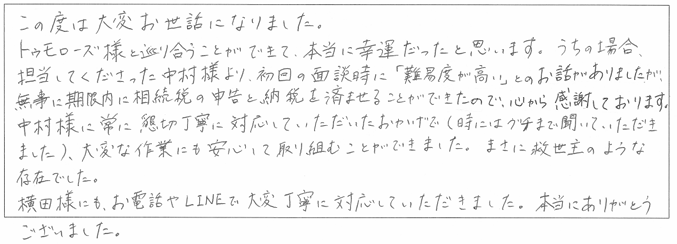 この度は大変お世話になりました。
トゥモローズ様と巡り合うことができて、本当に幸運だったと思います。うちの場合、
担当してくださった中村様より、初回の面談時に「難易度が高い」とのお話がありましたが、
無事に期限内に相続税の申告と納税を済ませることができたので、心から感謝しております。
中村様に常に懇切丁寧に対応していただいたおかげで(時にはグチまで聞いていただき
ました)、大変な作業にも安心して取り組むことができました。まさに救世主のような
存在でした。
横田様にも、お電話やLINEで大変丁寧に対応していただきました。本当にありがとう
ございました。